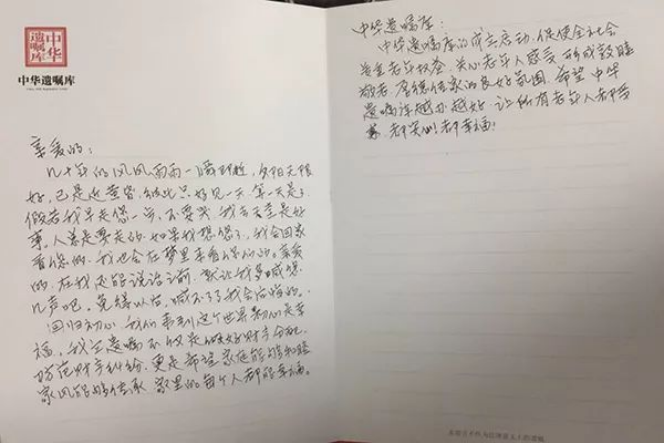 中华
遗嘱库
中华遗嘱库
亲爱的：
几十年的风风雨雨一瞬即逝，夕阳无限
好，已是近黄昏，彼此只好见一天，算一天是了
假若我早走您一步，不要哭，我去天堂是好
事。人总是要走的，如果我想您了，我会回家
看您的，我也会在梦里来看您的。亲爱
的，在我还能说话之前，就让我多喊您
几声吧。免得以后，喊不了了我会后悔的。
回归初心，我们来到这个世界初心是幸
福，我立遗嘱不仅是做好财产分配，
防范财产纠纷，更是希望家庭能够和睦
家风能够传承，家里的每个人都能幸福。
中华遗嘱库：
中华遗嘱库的成立启动，促使全社会
老年权益，关心老年人感受，形成
敬老 传家的良好氛围。希望中华
遗嘱库越办越好，让所有老年人都
都安心！都幸福！